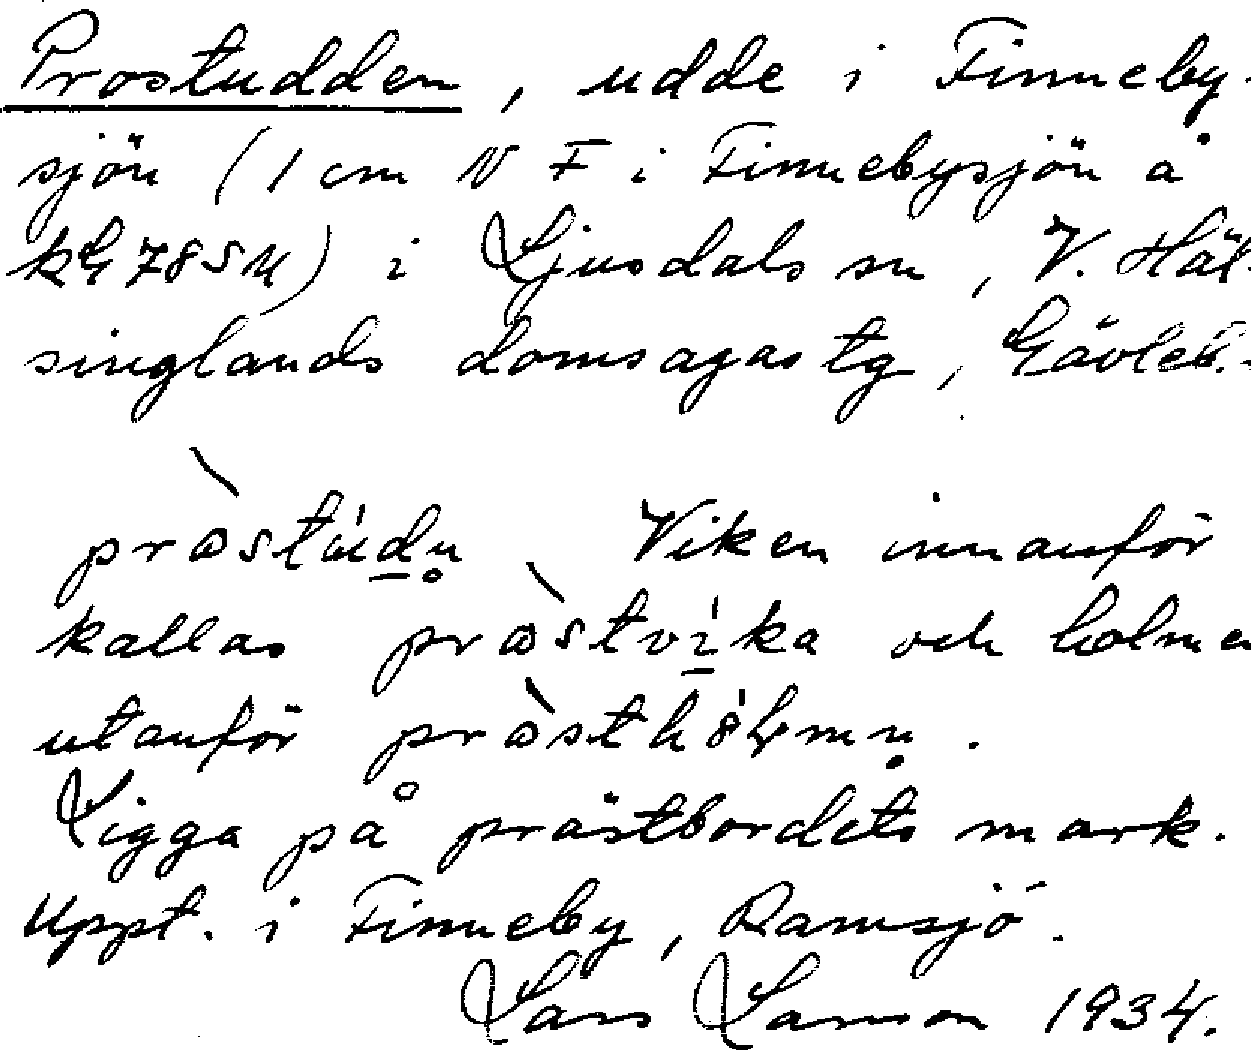 Prostudden, udde i Finneby-
sjön (1 cm N F i Finnebysjön å
kG 785 U) i Ljusdals sn, V. Häl-
singlands domsagas tg, Gävleb.-
Viken innanför
kallas och holmen
utanför
Ligga på prästbordets mark.
Uppt. i Finneby, Ramsjö.
Lars Larsson 1934.